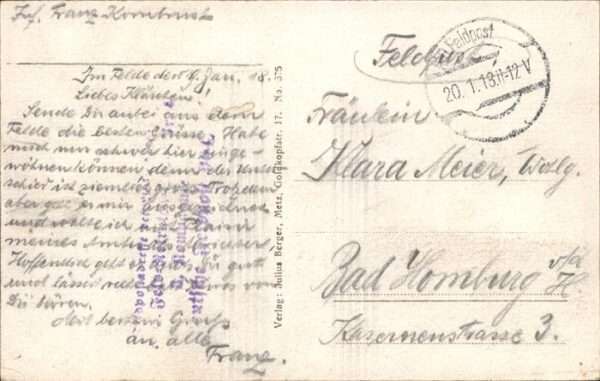 Inf. Franz Kornbrust
Im Felde den Jan. 18.
Liebes Klärchen!
Sende Dir anbei aus dem
Felde die besten Grüsse. Habe
mich nur schwer hier einge-
wöhnen können, denn der Unter-
schied ist ziemlich gross. Trotzdem
aber geht es mir ausgezeichnet
und wollte ich
meines
Hoffentlich geht es Dir gut
und lässest von
Dir hören.
Mit besten Gruss
an alle
Franz.
Verlag: Julius Berger, Metz, Goldkopfstr. 17. No. 375
Feldpost
Feldpost
20.1.18.11-12V
Fräulein
Klara Meier, Wohlg.
Bad Homburg v/d
H
Kasernenstrasse 3.